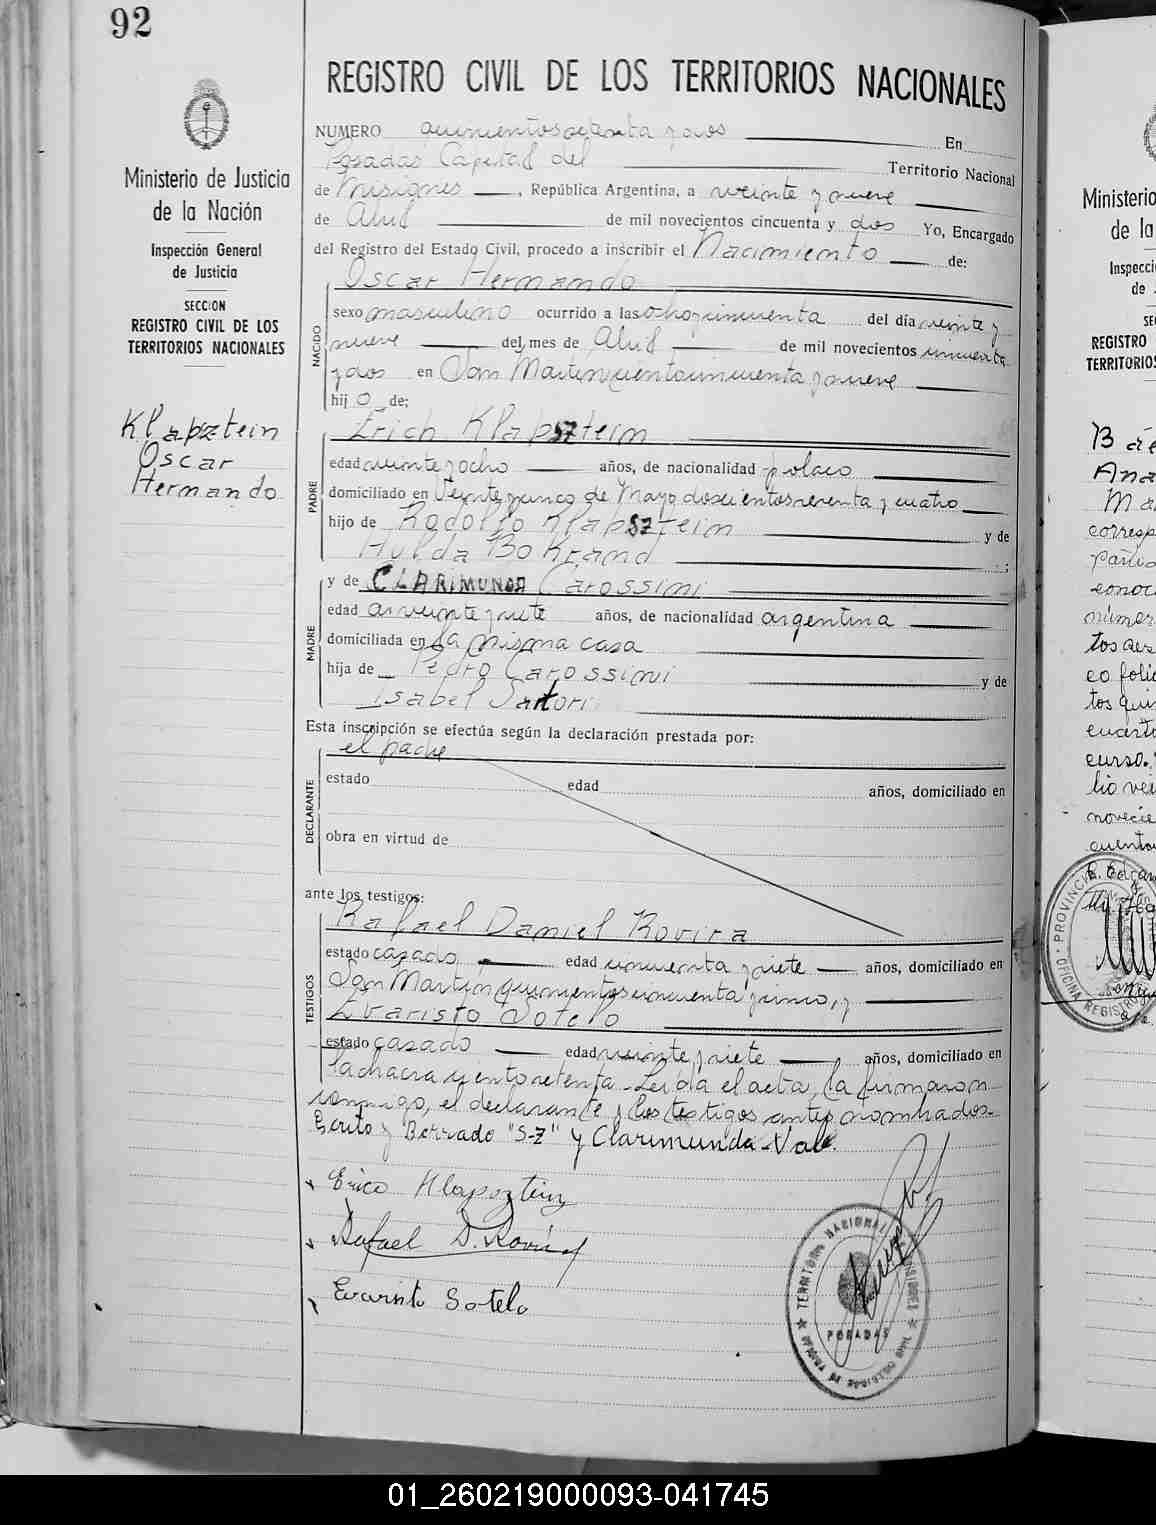 92
Ministerio de Justicia
de la Nación
Inspección General
de Justicia
SECCION
REGISTRO CIVIL DE LOS
TERRITORIOS NACIONALES
Klapztein
Oscar
Hernando
REGISTRO CIVIL DE LOS TERRITORIOS NACIONALES
NUMERO quinientos y dos En
Posadas Capital del Territorio Nacional
de Misiones, República Argentina, a veinte y nueve
de Abril de mil novecientos cincuenta y dos Yo, Encargado
del Registro del Estado Civil, procedo a inscribir el Nacimiento de:
Oscar Hernando
NACIDO
sexo masculino ocurrido a las ocho y cincuenta del día veinte y
nueve del mes de Abril de mil novecientos cincuenta
y dos en San Martin ciento cincuenta y nueve
hijo de:
Erich Klapsztein
PADRE
edad veinte y ocho años, de nacionalidad polaco
domiciliado en Veinte y cinco de Mayo doscientos y cuatro
hijo de Rodolfo Klapsztein y de
Hulda Bokrand
MADRE
y de CLARIMUNDA Carossini
edad veinte y siete años, de nacionalidad argentina
domiciliada en la misma casa
hija de Pedro Carossini y de
Isabel Sartori
Esta inscripción se efectúa según la declaración prestada por:
el padre
DECLARANTE
estado edad años, domiciliado en
obra en virtud de
ante los testigos:
Rafael Daniel Rovira
TESTIGOS
estado casado edad cincuenta y siete años, domiciliado en
San Martin quinientos cincuenta y cinco, y
Evaristo Sotelo
estado casado edad veinte y siete años, domiciliado en
la chacra ciento setenta - Leída el acta, la firmaron
conmigo, el declarante y los testigos antes nombrados.
Escrito y Borrado "S-Z" y Clarimunda - Vale.
Erico Klapsztein
Rafael D. Rovira
Evaristo Sotelo
TERRITORIO NACIONAL DE MISIONES
POSADAS
Ministerio
de la
Inspecci
de
REGISTRO
TERRITORIOS
Ana
PROVINCIA
OFICINA REGISTRO
01_260219000093-041745